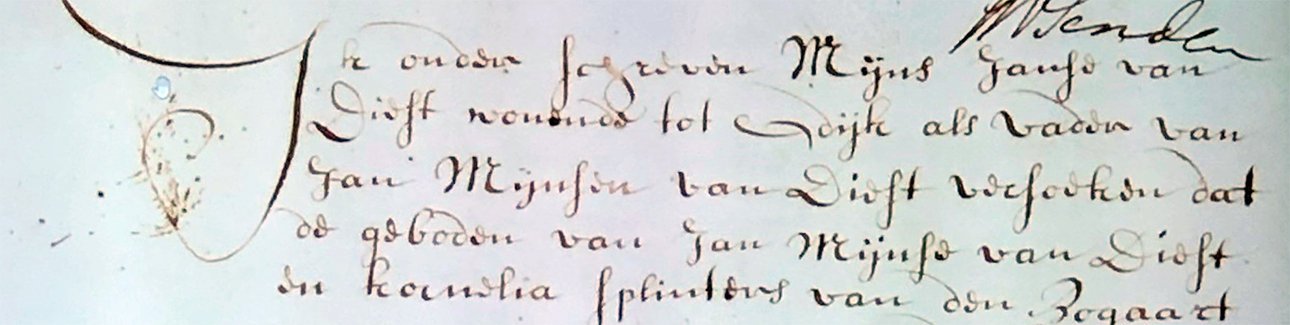 Ik onder schreven Mijns Janse van
Diest wonende tot dijk als vader van
Jan Mijnsen van Diest versoeken dat
de geboden van Jan Mijnse van Diest
en kornelia splinters van den Bogaart